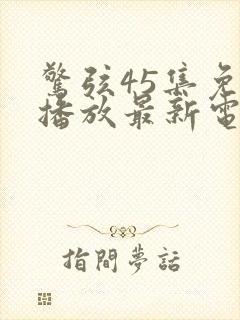 驚弦45集免
播放最新電
指間夢話